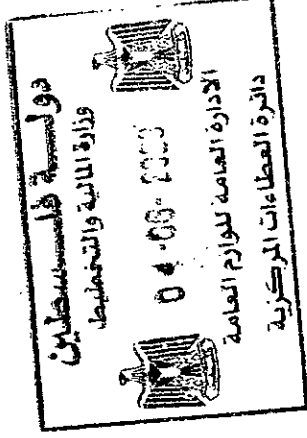 دولة فلسطين
وزارة المالية والتخطيط
الادارة العامة للوازم العامة
دائرة العطاءات المركزية